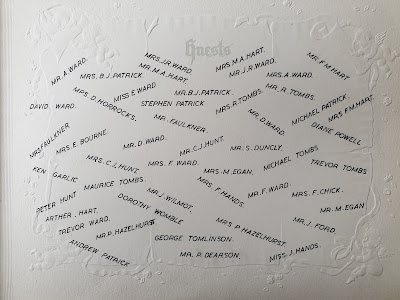 Guests
MR. A. WARD.
MRS. J.R. WARD.
MRS. M.A. HART.
MR. F.M. HART
MRS. B.J. PATRICK.
MR. M.A. HART.
MR. J.R. WARD.
MRS. A. WARD.
MRS. D. HORROCKS.
MISS E WARD
MR. B.J. PATRICK.
MR. R. TOMBS.
DAVID WARD.
STEPHEN PATRICK
MRS. R. TOMBS.
MICHAEL PATRICK.
MRS. F.M. HART.
MRS FAULKNER
MR. FAULKNER.
MR. D. WARD.
DIANE POWELL
MRS. E. BOURNE.
MR. D. WARD.
MR. C.J. HUNT
MR. S. DUNCLY.
MRS. C.J. HUNT.
MRS. F. WARD.
MRS. M. EGAN.
MICHAEL TOMBS
TREVOR TOMBS
KEN GARLIC
MAURICE TOMBS.
MRS. F. HANDS.
MR. F. WARD.
MRS. F. CHICK.
PETER HUNT
DOROTHY WOMBLE
MR. J. WILMOT.
MR. M. EGAN
ARTHER. HART.
TREVOR WARD.
MR. P. HAZELHURST
MRS. P. HAZELHURST.
MR. J. FORD.
ANDREW PATRICK
GEORGE TOMLINSON.
MR. P. DEARSON.
MISS. J. HANDS.